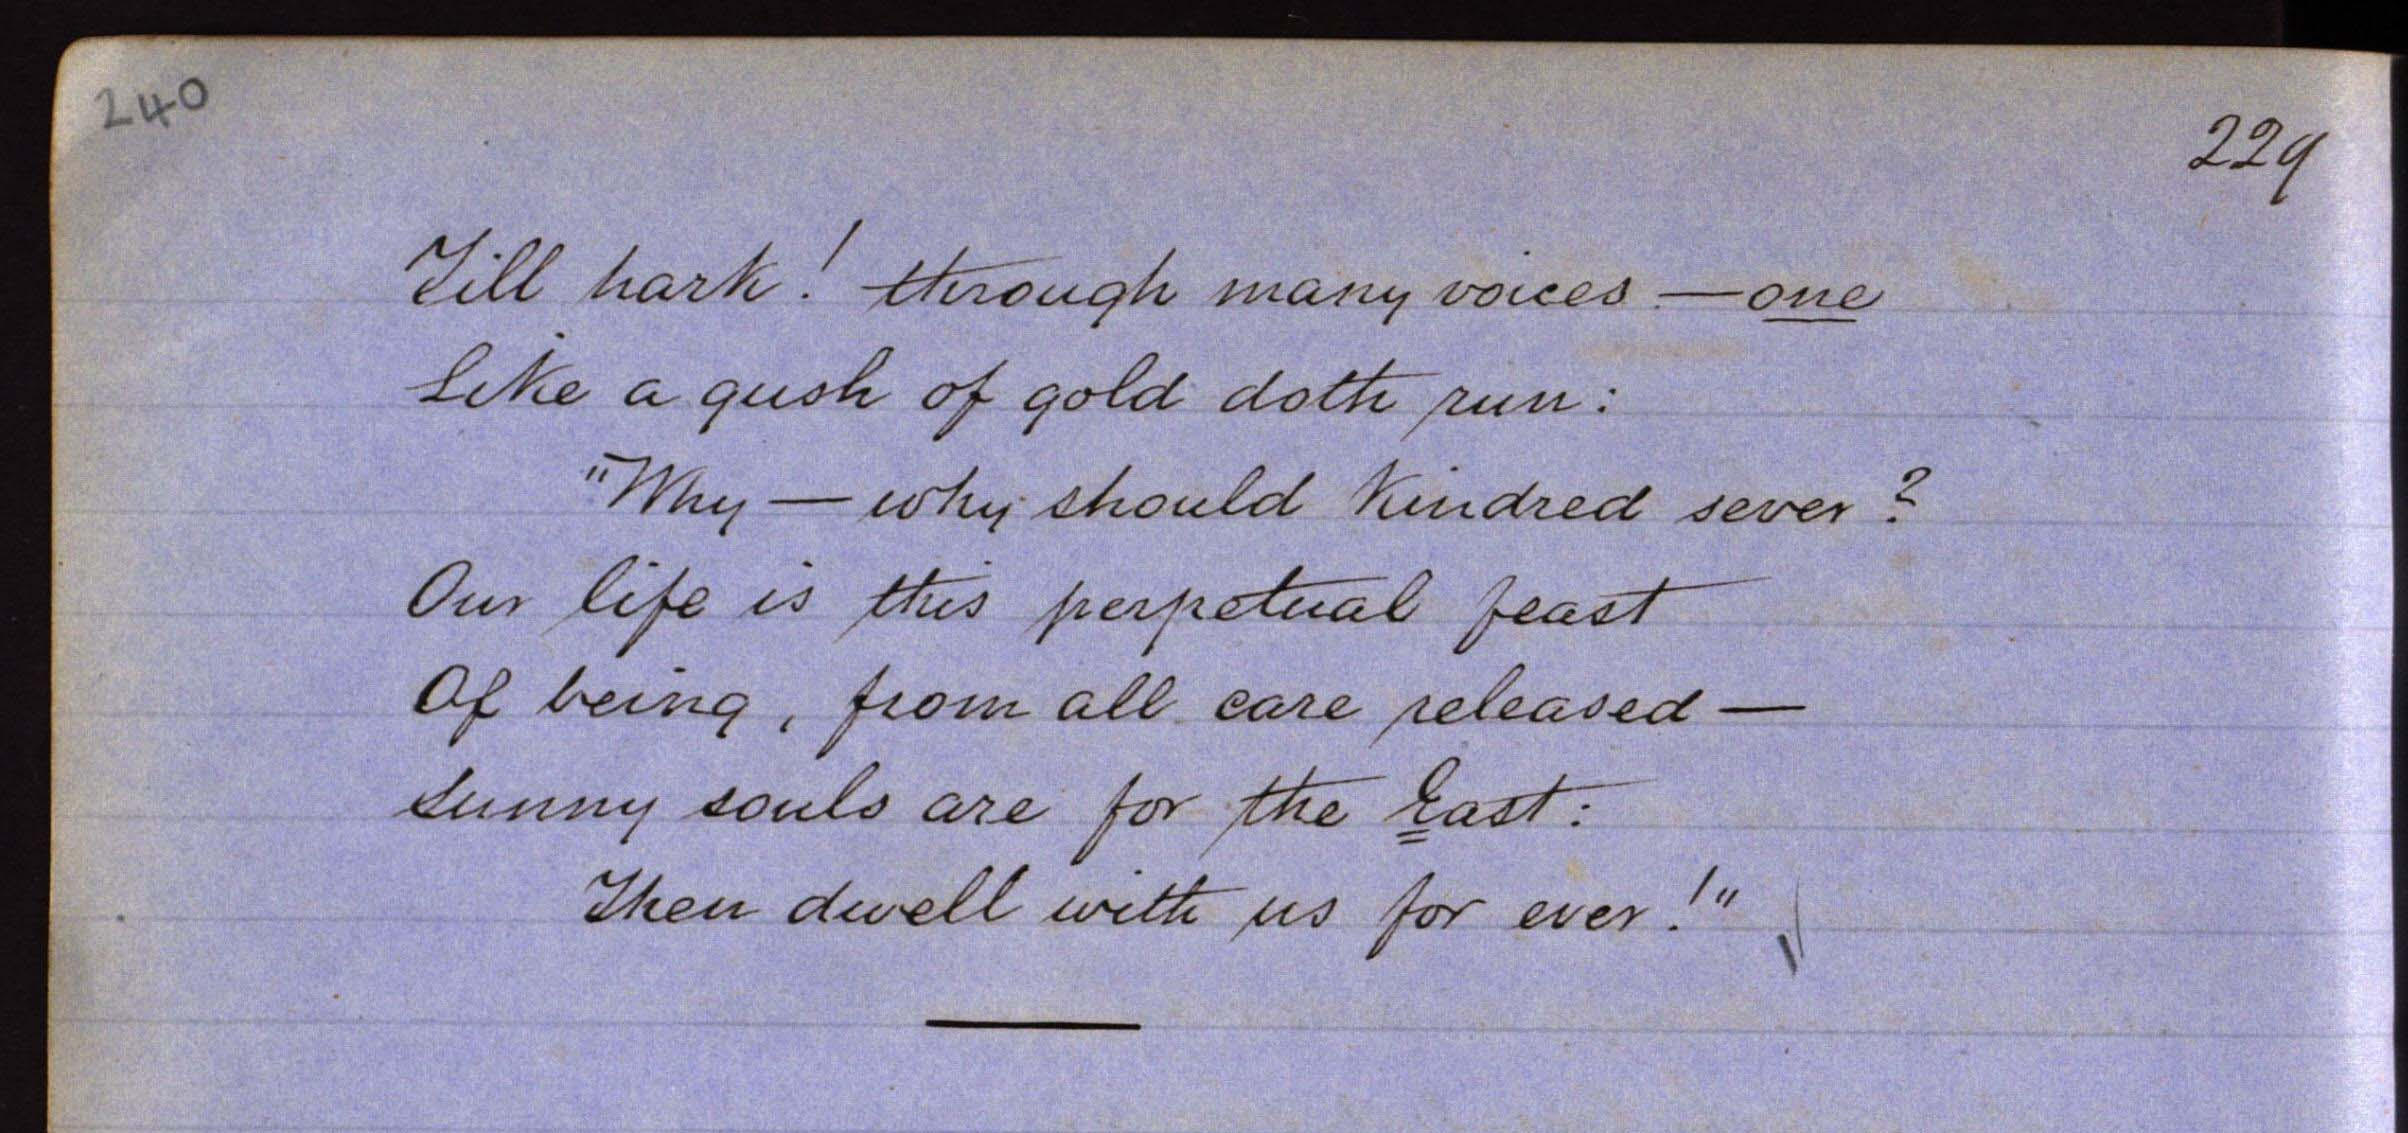 240
229
Till hark! through many voices — one
Like a gush of gold doth run:
"Why — why should kindred sever?
Our life is this perpetual feast
Of being, from all care released —
Sunny souls are for the East:
Then dwell with us for ever!"